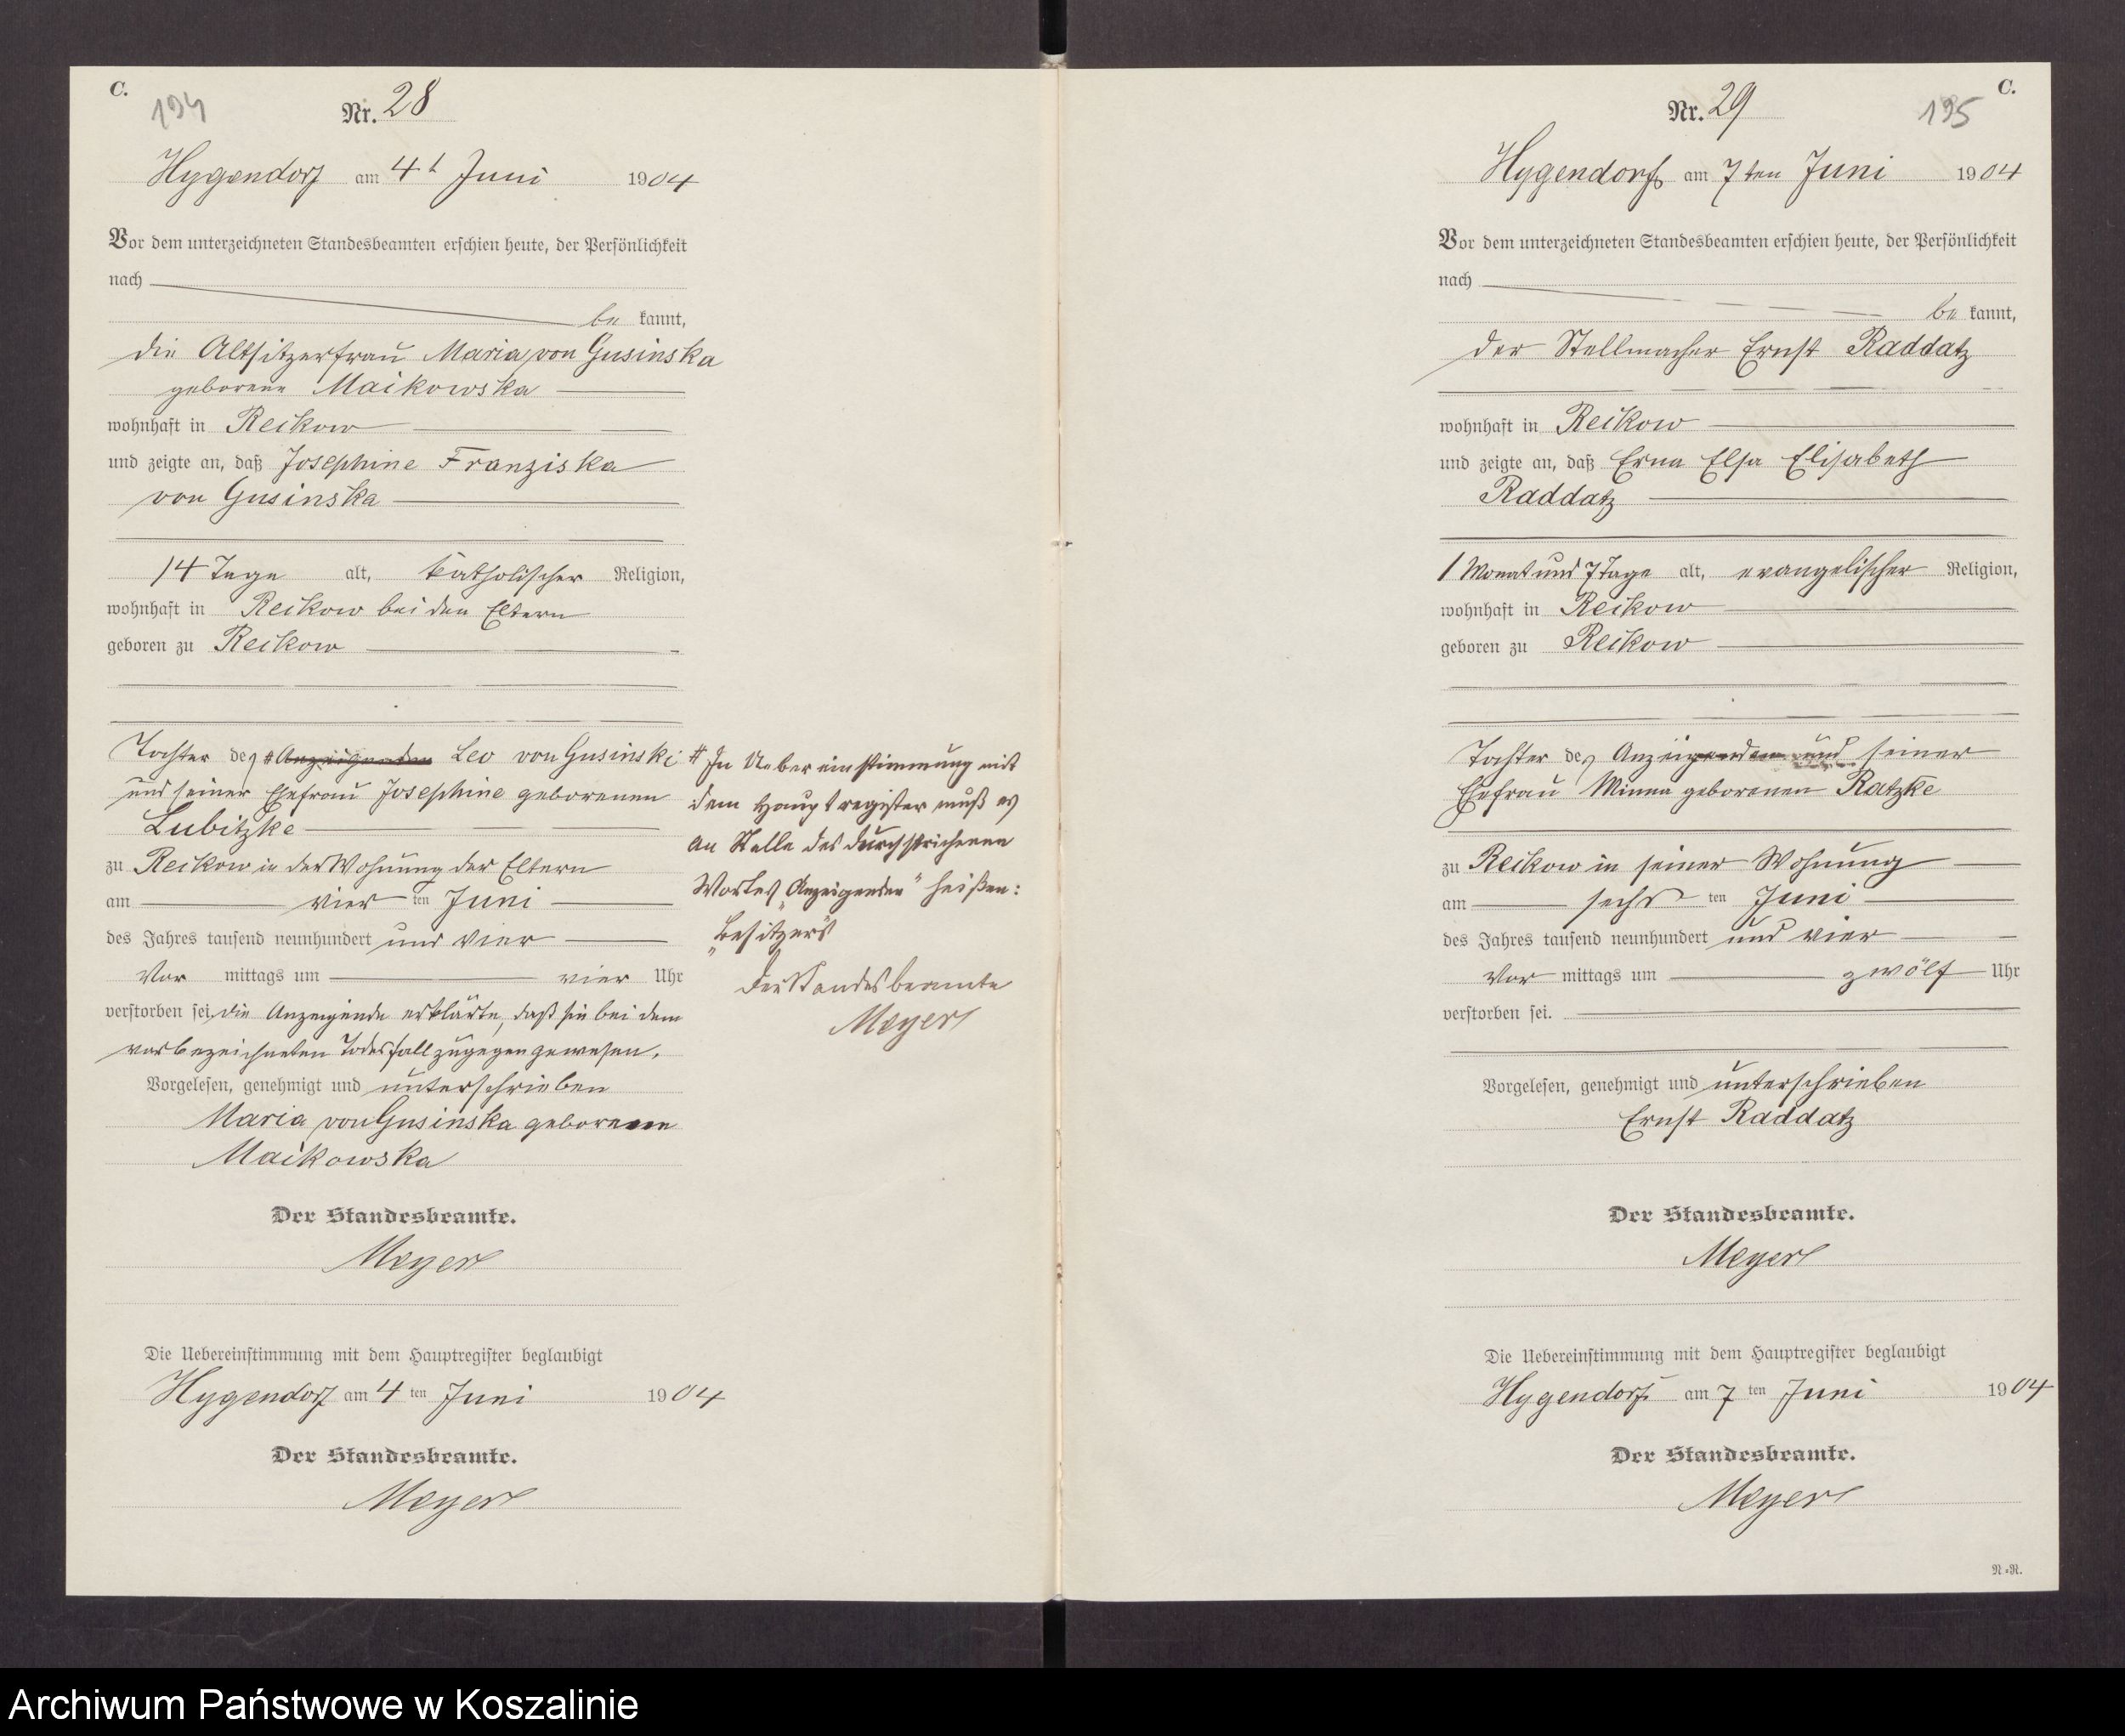 C.
194
Nr. 28
Hygendorf am 4t Juni 1904
Vor dem unterzeichneten Standesbeamten erschien heute, der Persönlichkeit
nach
be kannt,
die Altsitzerfrau Maria von Gusinska
geborene Maikowska
wohnhaft in Reikow
und zeigte an, daß Josephine Franziska
von Gusinska
14 Tage alt, katholischer Religion,
wohnhaft in Reikow bei den Eltern
geboren zu Reikow
Tochter des # Anzeigenden Leo von Gusinski
und seiner Ehefrau Josephine geborenen
Lubitzke
zu Reikow in der Wohnung der Eltern
am vier ten Juni
des Jahres tausend neunhundert und vier
Vor mittags um vier Uhr
verstorben sei, die Anzeigende erklärte, daß sie bei dem
vorbezeichneten Todesfall zugegen gewesen.
Vorgelesen, genehmigt und unterschrieben
Maria von Gusinska geborene
Maikowska
Der Standesbeamte.
Meyer
Die Uebereinstimmung mit dem Hauptregister beglaubigt
Hygendorf am 4 ten Juni 1904
Der Standesbeamte.
Meyer
# In Uebereinstimmung mit
dem Hauptregister muß es
an Stelle des durchstrichenen
Wortes „Anzeigenden" heißen:
„Besitzers"
Der Standesbeamte
Meyer
C.
195
Nr. 29
Hygendorf am 7ten Juni 1904
Vor dem unterzeichneten Standesbeamten erschien heute, der Persönlichkeit
nach
be kannt,
der Stellmacher Ernst Raddatz
wohnhaft in Reikow
und zeigte an, daß Erna Elsa Elisabeth
Raddatz
1 Monat und 7 Tage alt, evangelischer Religion,
wohnhaft in Reikow
geboren zu Reikow
Tochter des Anzeigenden und seiner
Ehefrau Minna geborenen Ratzke
zu Reikow in seiner Wohnung
am sechs ten Juni
des Jahres tausend neunhundert und vier
Vor mittags um zwölf Uhr
verstorben sei.
Vorgelesen, genehmigt und unterschrieben
Ernst Raddatz
Der Standesbeamte.
Meyer
Die Uebereinstimmung mit dem Hauptregister beglaubigt
Hygendorf am 7 ten Juni 1904
Der Standesbeamte.
Meyer
N.=R.
Archiwum Państwowe w Koszalinie